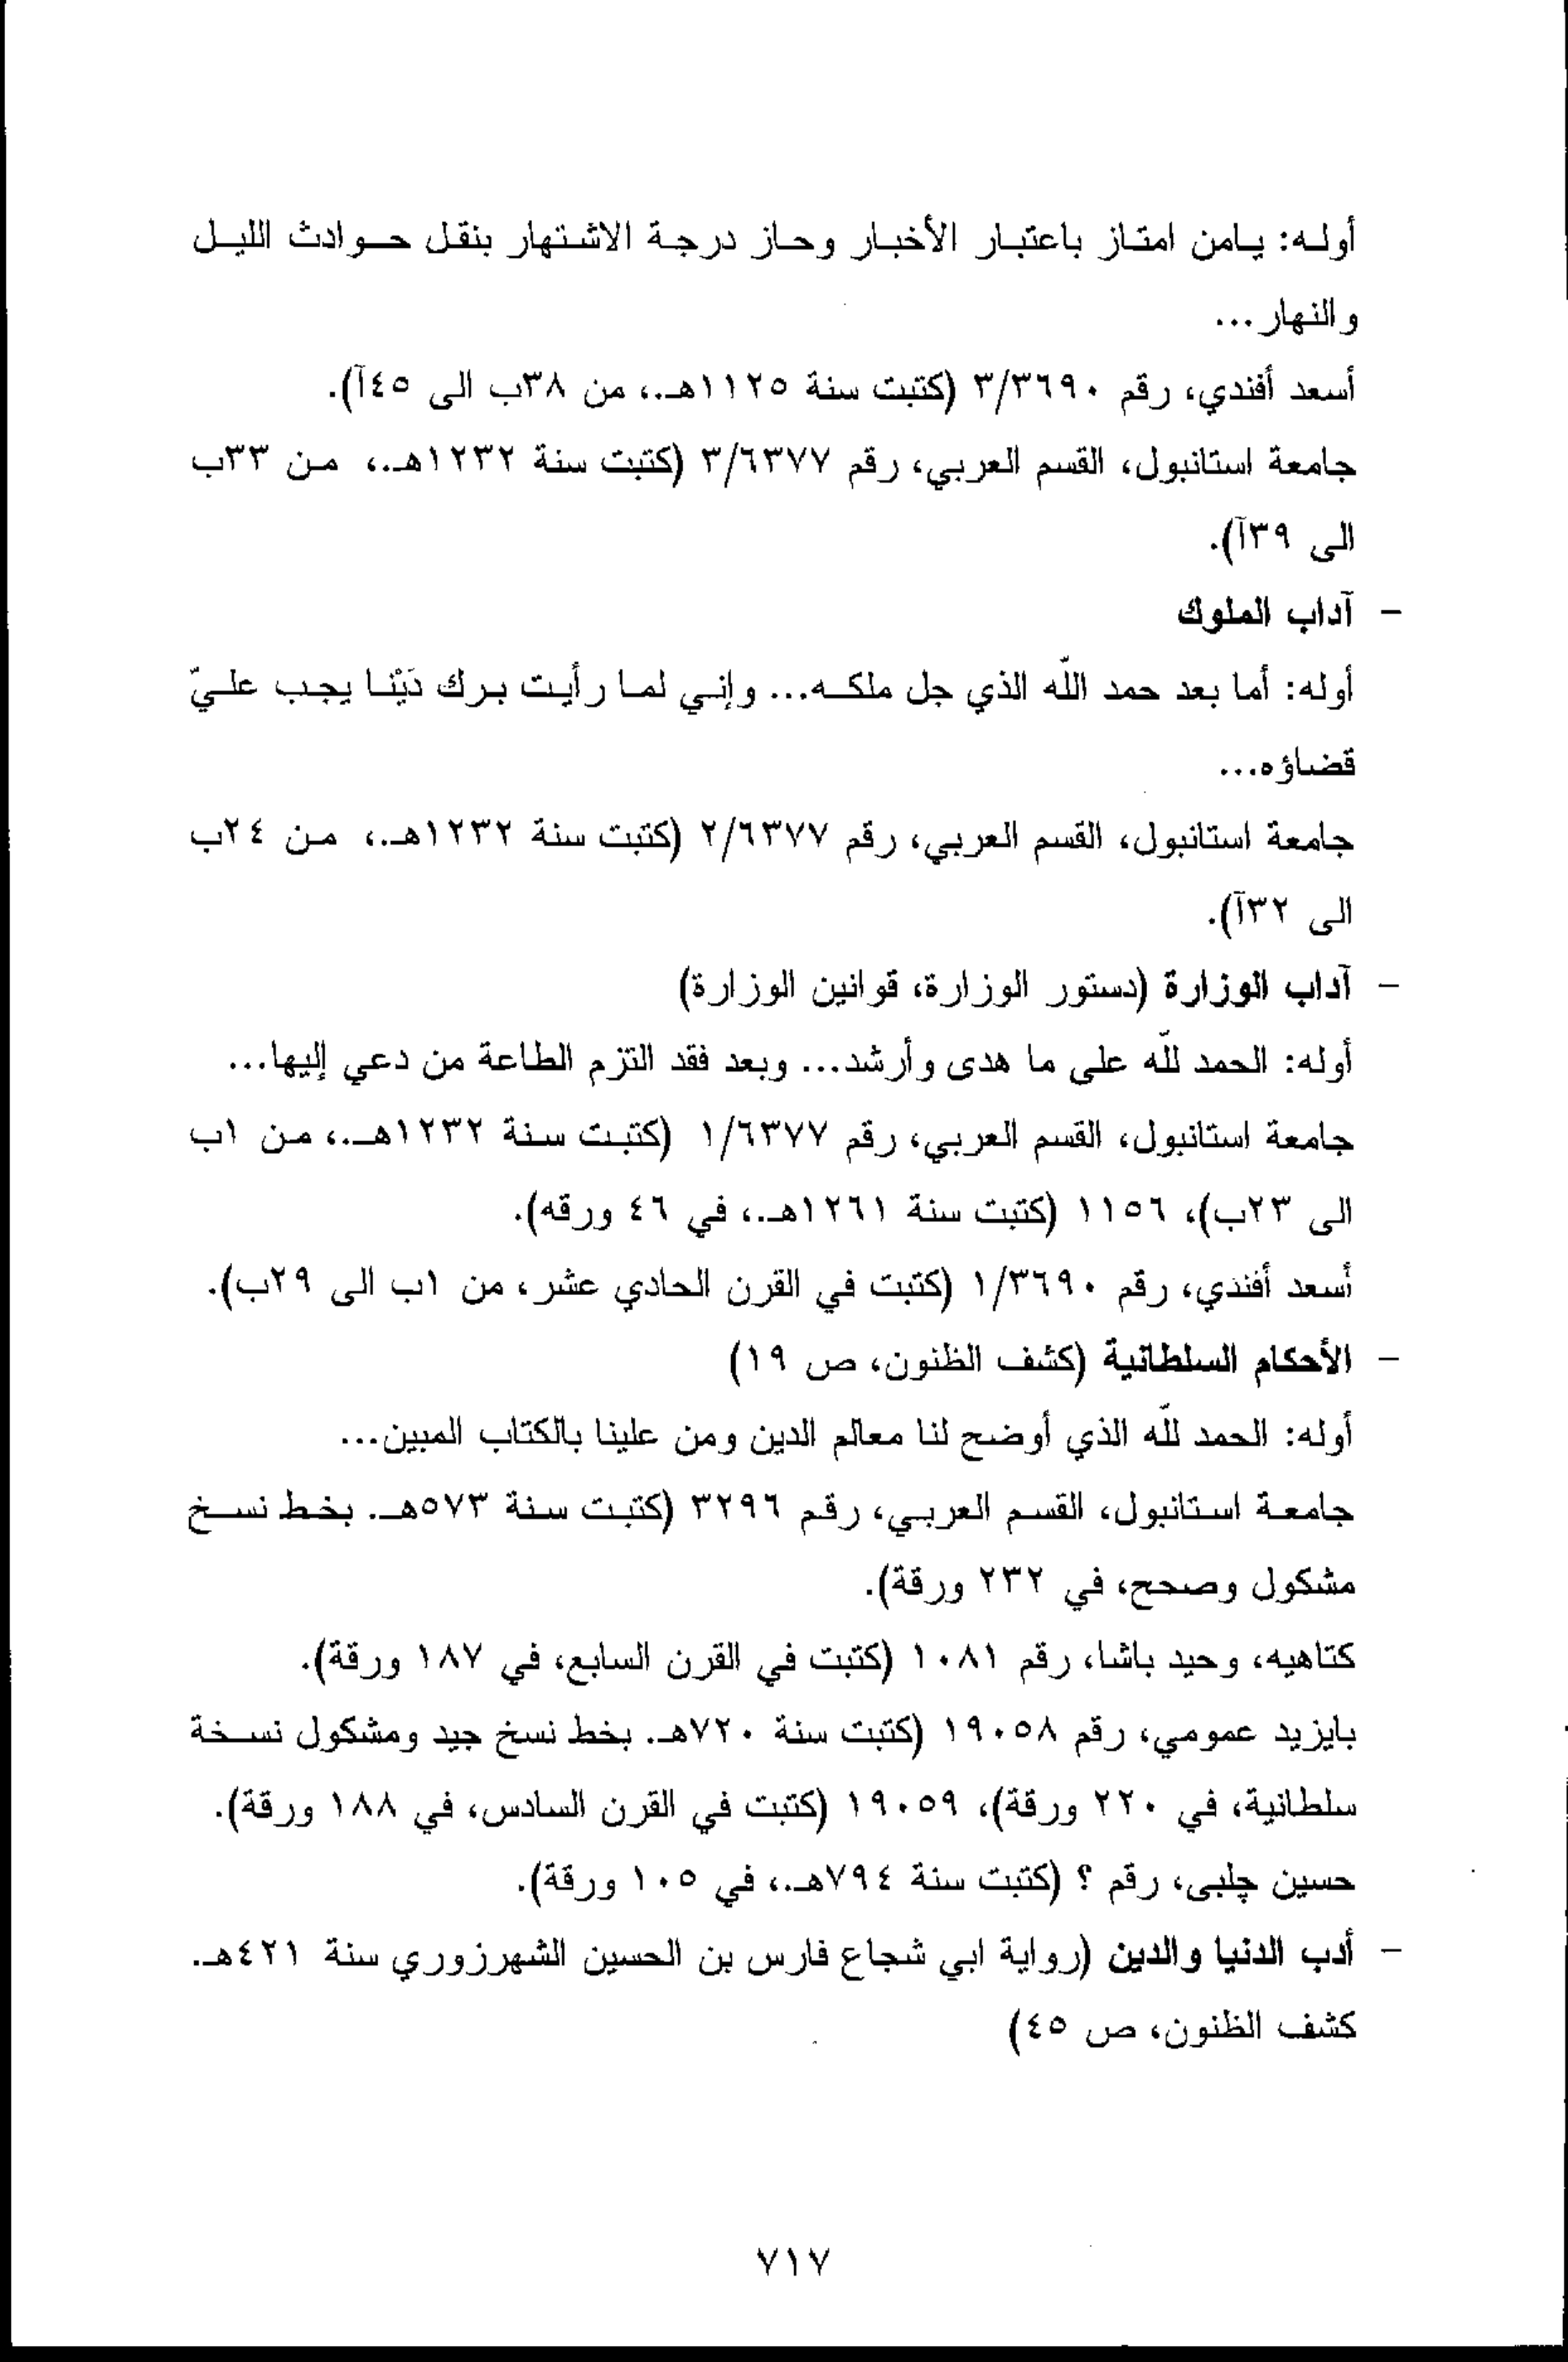 أوله: يامن امتاز باعتبار الأخبار وحاز درجة الاشتهار بنقل حوادث الليل
والنهار...
أسعد أفندي، رقم ٣/٣٦٩٠ (كتبت سنة ١١٢٥هـ.، من ٣٨ب الى ٤٥آ).
جامعة استانبول، القسم العربي، رقم ٣/٦٣٧٧ (كتبت سنة ١٢٣٢هـ.، من ٣٣ب
الى ٣٩آ).
- آداب الملوك
أوله: أما بعد حمد اللّه الذي جل ملكه... وإني لما رأيت برك دَيْنا يجب عليّ
قضاؤه...
جامعة استانبول، القسم العربي، رقم ٢/٦٣٧٧ (كتبت سنة ١٢٣٢هـ.، من ٢٤ب
الى ٣٢آ).
- آداب الوزارة (دستور الوزارة، قوانين الوزارة)
أوله: الحمد للّه على ما هدى وأرشد... وبعد فقد التزم الطاعة من دعي إليها...
جامعة استانبول، القسم العربي، رقم ١/٦٣٧٧ (كتبت سنة ١٢٣٢هـ.، من ١ب
الى ٢٣ب)، ١١٥٦ (كتبت سنة ١٢٦١هـ.، في ٤٦ ورقه).
أسعد أفندي، رقم ١/٣٦٩٠ (كتبت في القرن الحادي عشر، من ١ب الى ٢٩ب).
- الأحكام السلطانية (كشف الظنون، ص ١٩)
أوله: الحمد للّه الذي أوضح لنا معالم الدين ومن علينا بالكتاب المبين...
جامعة استانبول، القسم العربي، رقم ٣٢٩٦ (كتبت سنة ٥٧٣هـ. بخط نسخ
مشكول وصحح، في ٢٣٢ ورقة).
كتاهيه، وحيد باشا، رقم ١٠٨١ (كتبت في القرن السابع، في ١٨٧ ورقة).
بايزيد عمومي، رقم ١٩٠٥٨ (كتبت سنة ٧٢٠هـ. بخط نسخ جيد ومشكول نسخة
سلطانية، في ٢٢٠ ورقة)، ١٩٠٥٩ (كتبت في القرن السادس، في ١٨٨ ورقة).
حسين چلبى، رقم ؟ (كتبت سنة ٧٩٤هـ.، في ١٠٥ ورقة).
- أدب الدنيا والدين (رواية ابي شجاع فارس بن الحسين الشهرزوري سنة ٤٢١هـ.
كشف الظنون، ص ٤٥)
٧١٧